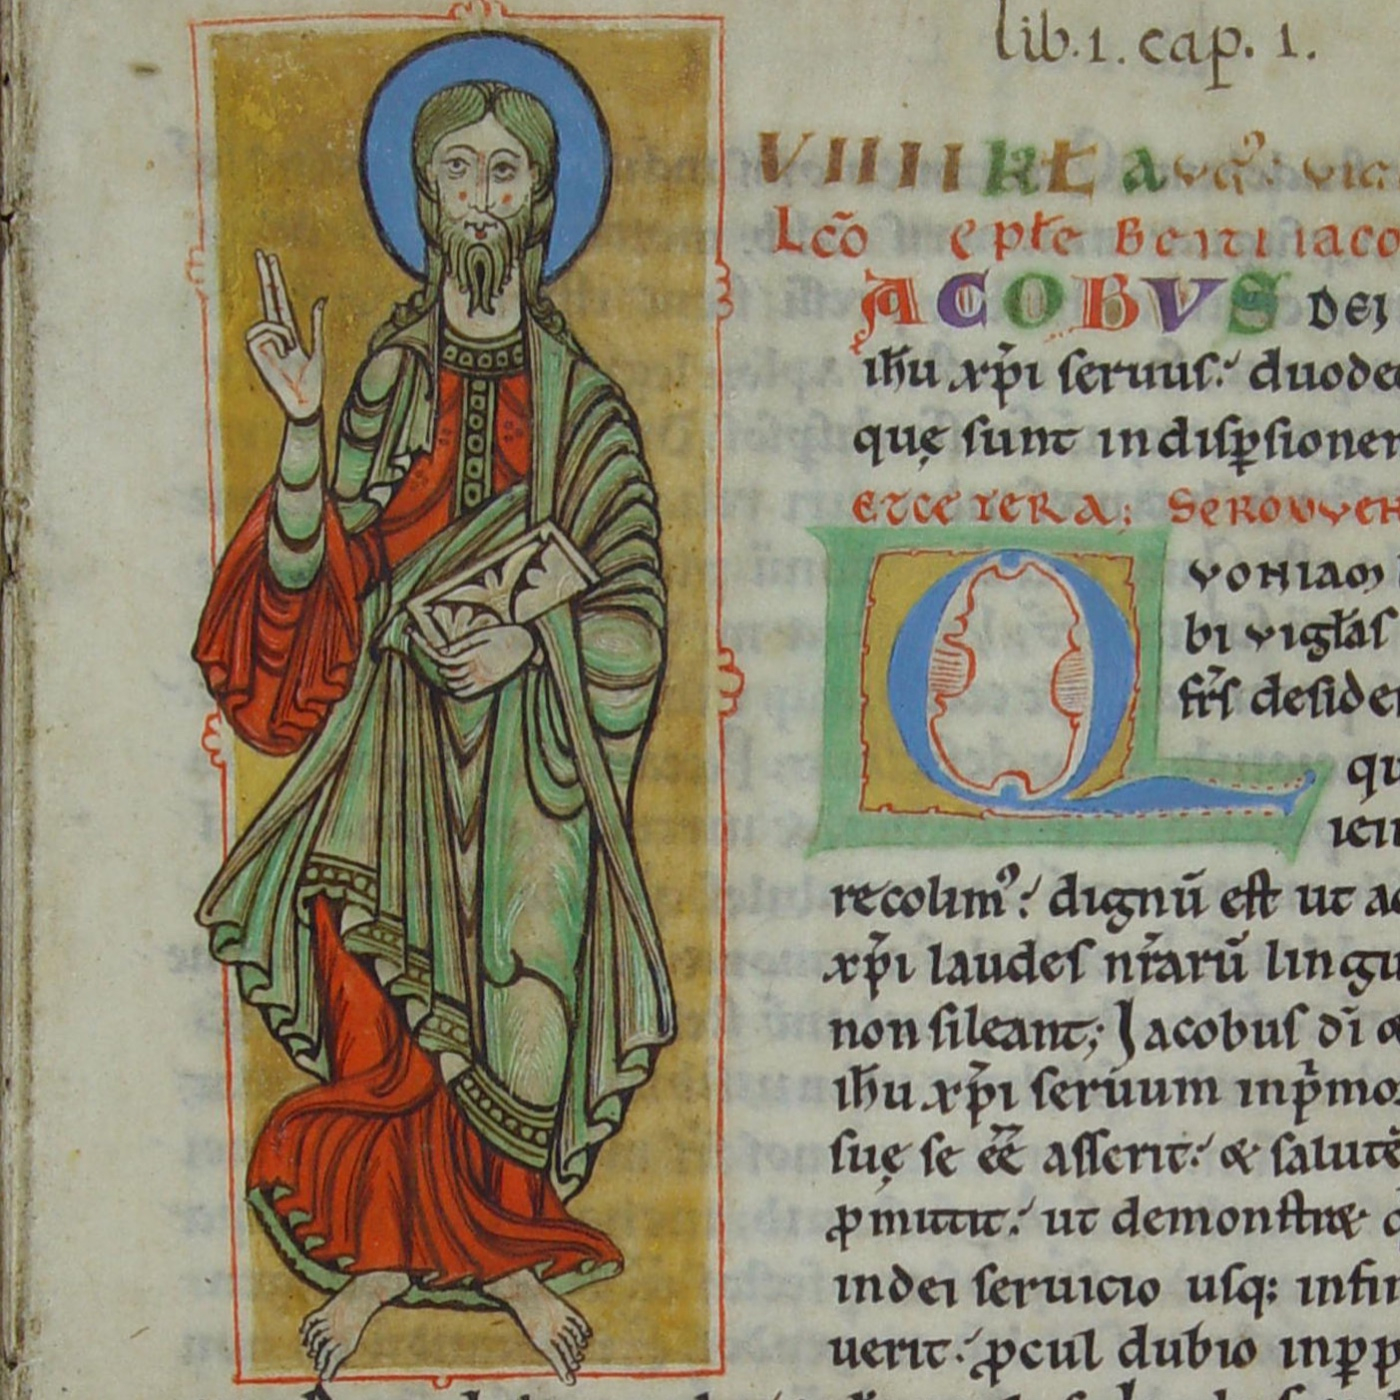 lib. 1. cap. 1.
VIIII kł aug᷒: vig
Lc̄o epłe Beati iaco
IACOBVS DEI
ih̄u xp̄i seruus: duode
quę sunt in disꝑsionem
ET CETERA: SERMO VEN
QVONIAM
bi vigłas
fr̄s deside
qu
iei
recolim᷒: dignū est ut a
xp̄i laudes nr̄arū lingu
non sileant; Jacobus dī &
ih̄u xp̄i seruum inp̄mo
suę se ēē asserit: & salutē
ꝓmittit: ut demonstret
in dei seruicio usq; in fin
uerit: ꝓcul dubio in